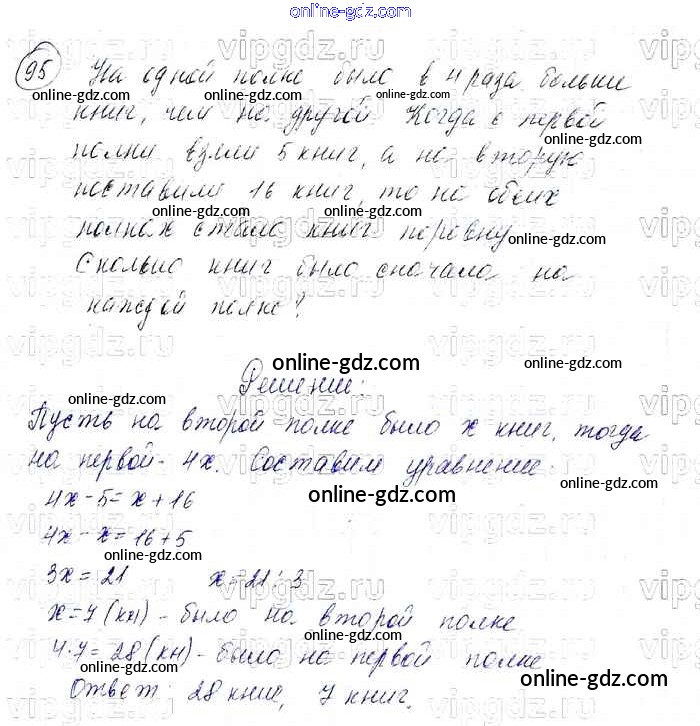 online-gdz.com
95 На одной полке было в 4 раза больше
книг, чем на другой Когда с первой
полки взяли 5 книг, а на вторую
поставили 16 книг, то на обеих
полках стало книг поровну
Сколько книг было сначала на
каждой полке?
Решение:
Пусть на второй полке было x книг, тогда
на первой - 4x. Составим уравнение.
4x - 5 = x + 16
4x - x = 16 + 5
3x = 21 x = 21 : 3
x = 7 (кн) - было на второй полке
4·7 = 28 (кн) - было на первой полке
Ответ: 28 книг, 7 книг.